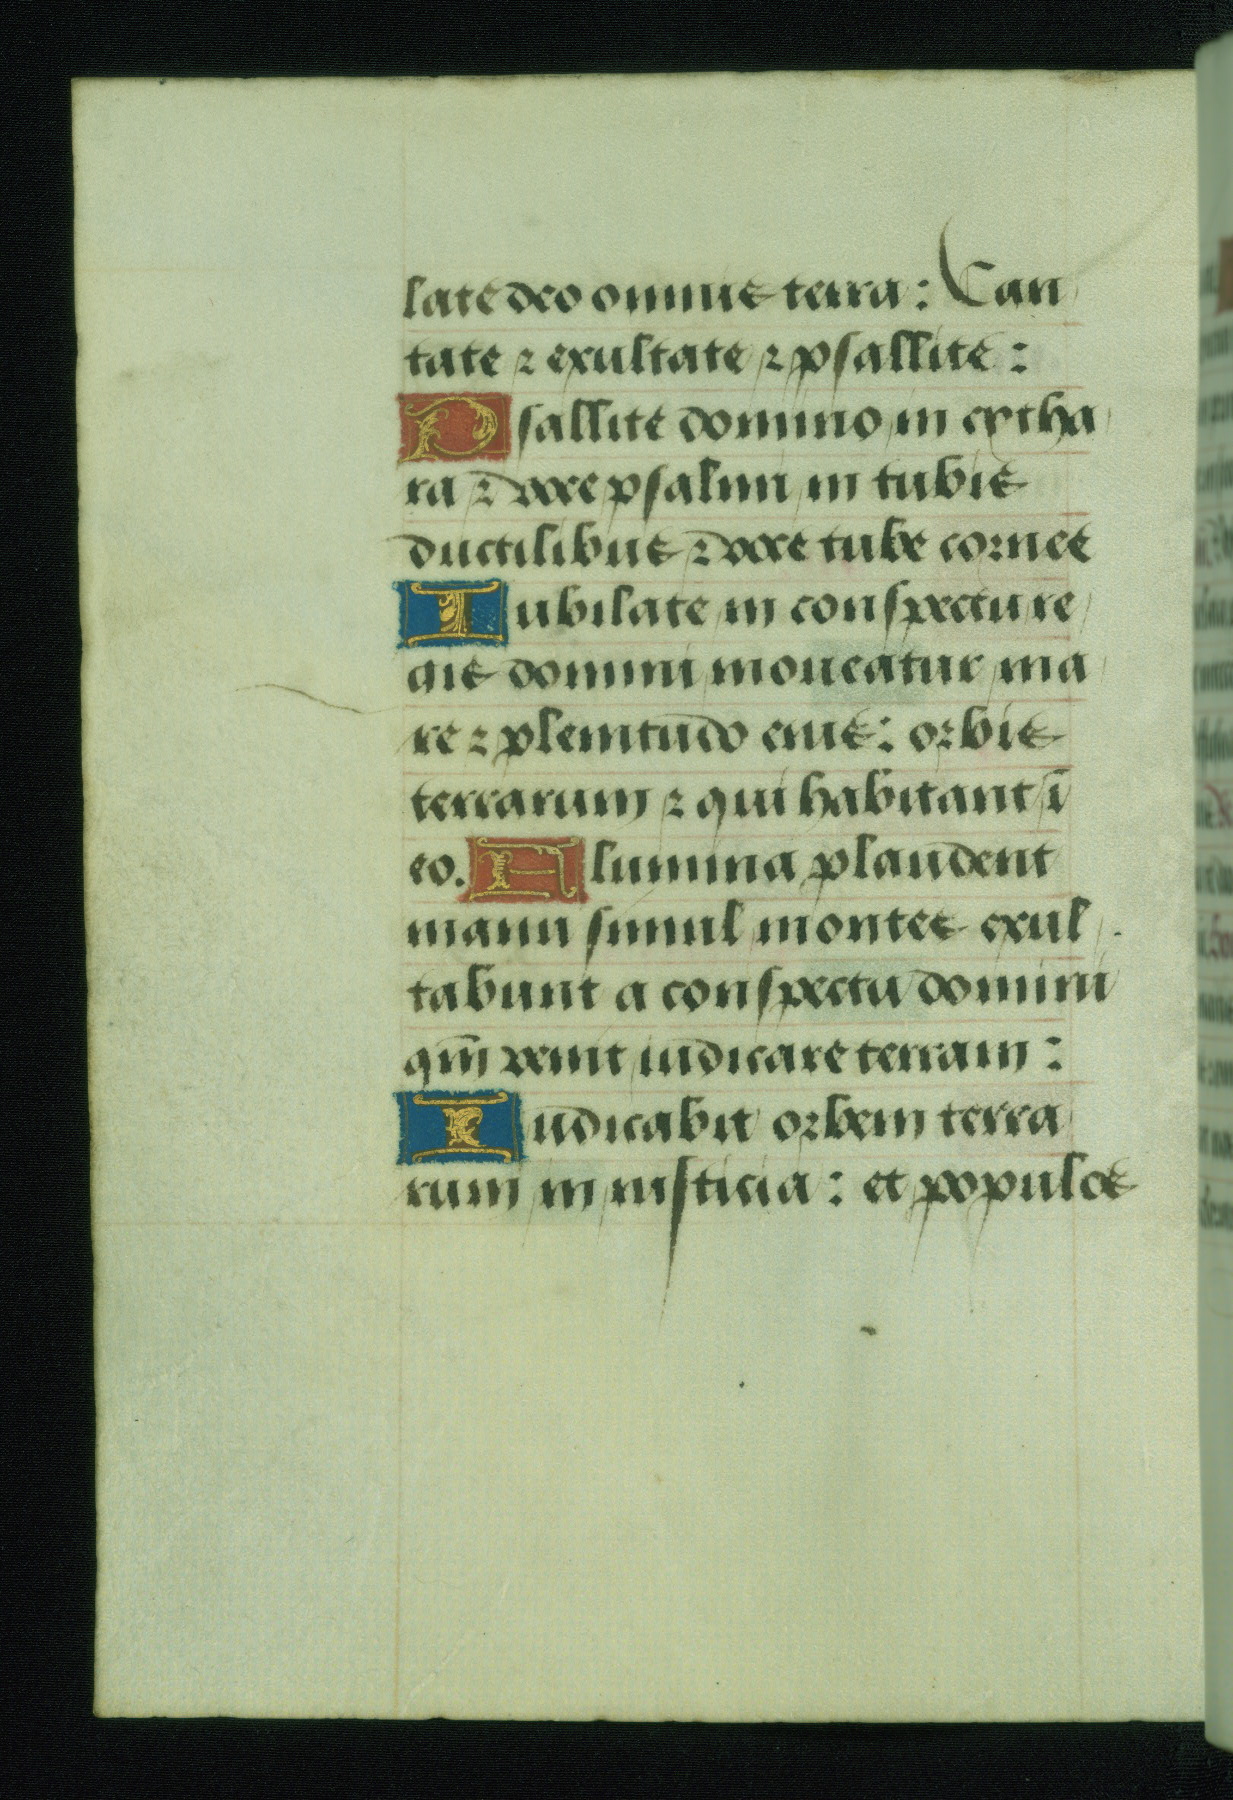 late deo omnis terra: Can
tate ⁊ exultate ⁊ psallite:
Psallite domino in cytha
ra ⁊ voce psalmi in tubis
ductilibus ⁊ voce tube cornee
Iubilate in conspectu re
gis domini moueatur ma
re ⁊ plenitudo eius: orbis
terrarum ⁊ qui habitant ī
eo. Flumina plaudent
manu simul montes exul
tabunt a conspectu domini
qm̄ venit iudicare terram:
Iudicabit orbem terra
rum in iusticia: et populos